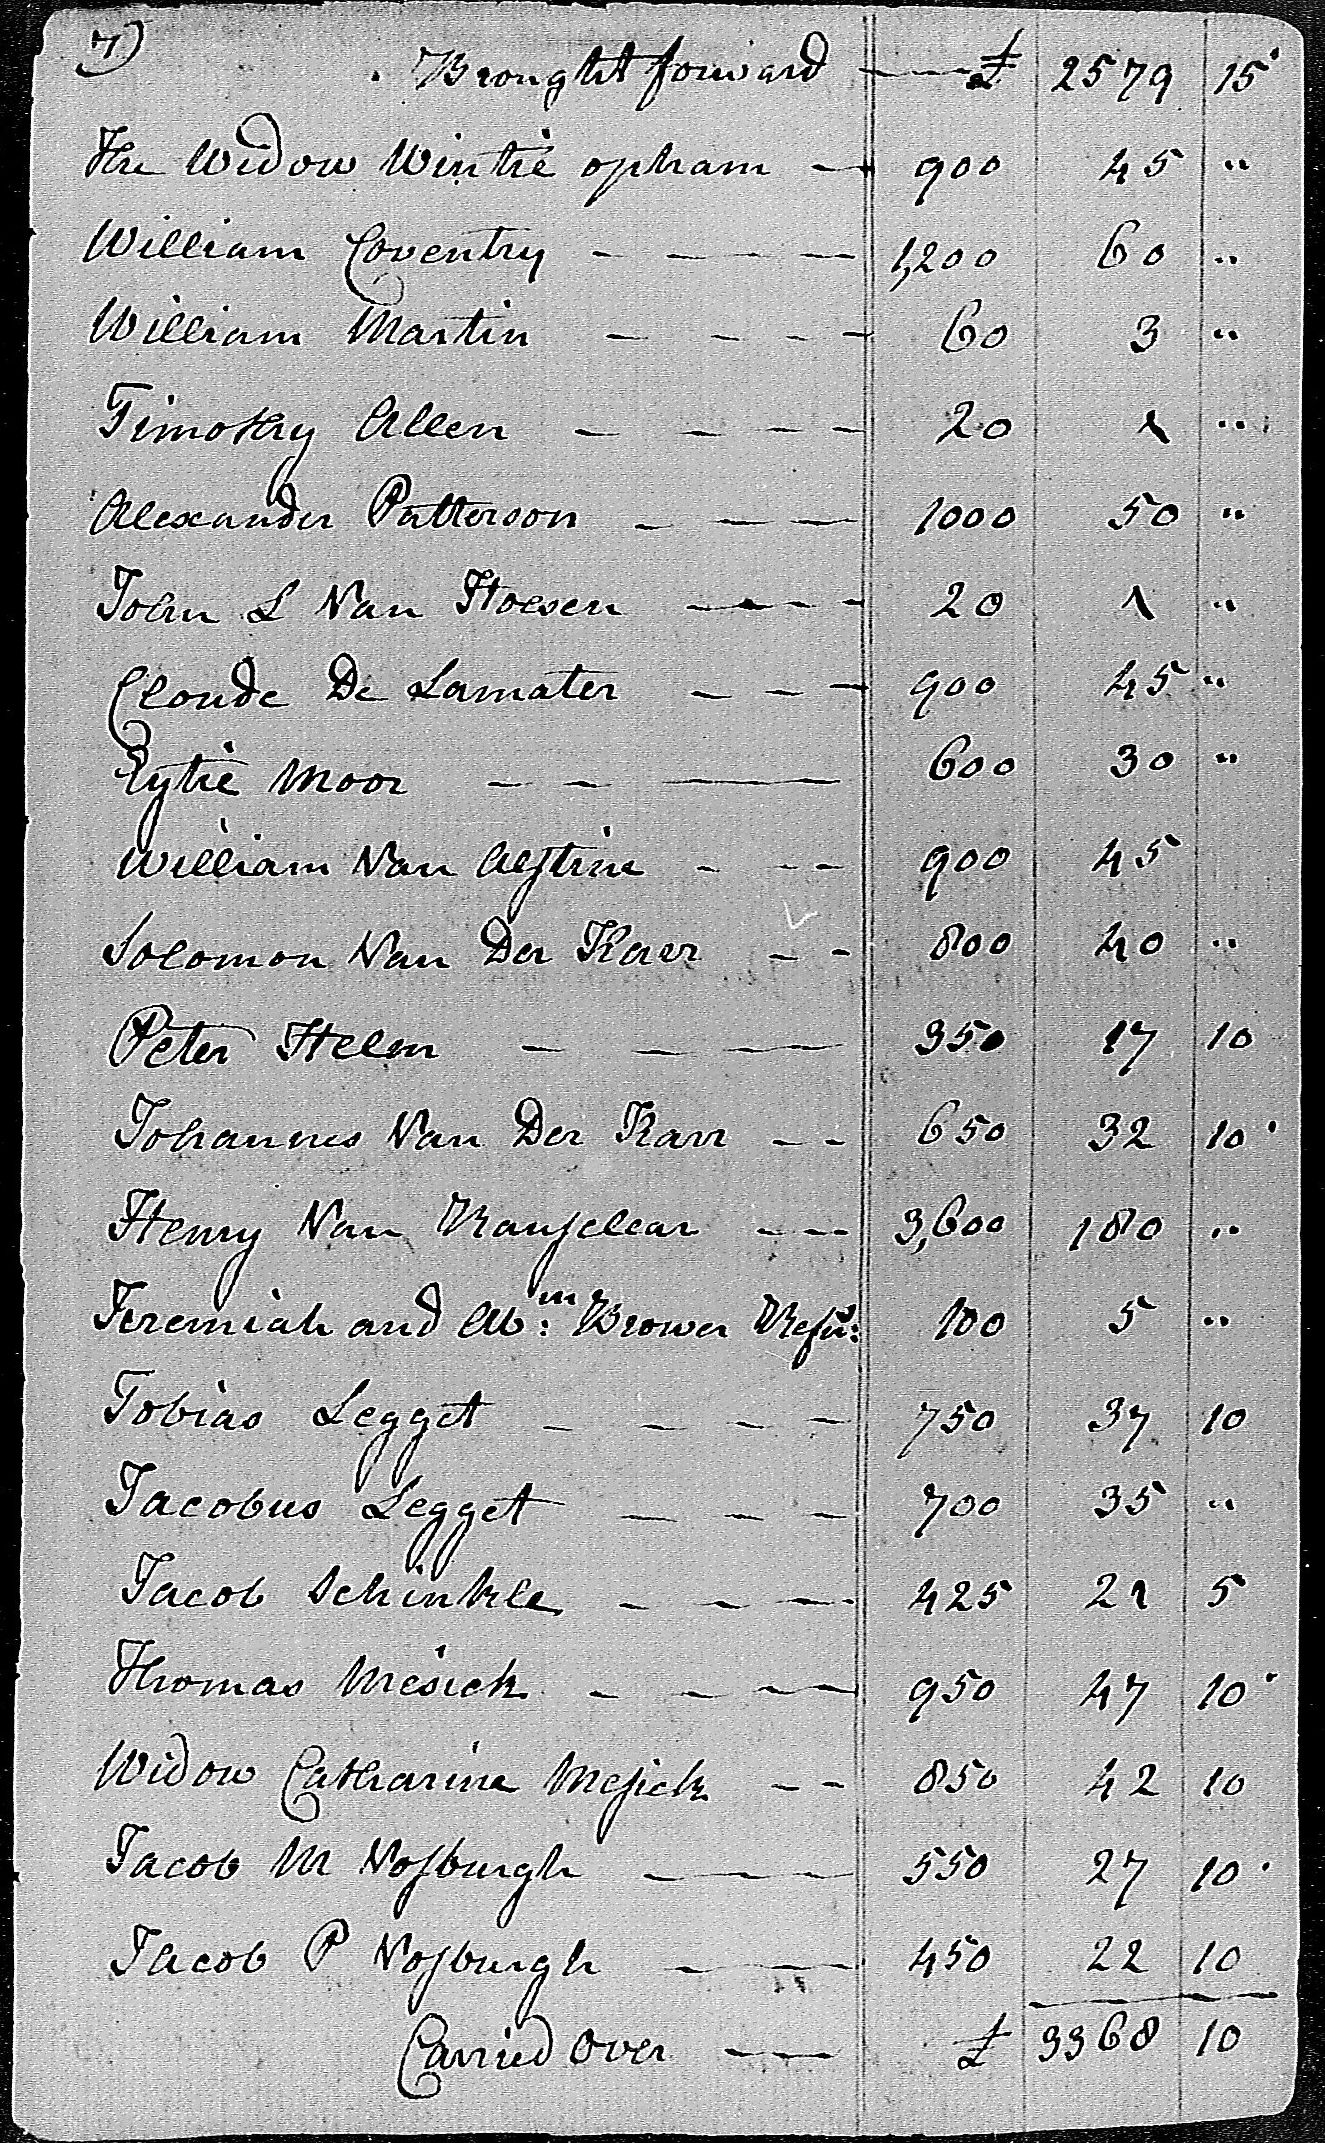 7)
Brought forward £ 2579 15
The Widow Wintie opham 900 45 "
William Coventry 1,200 60 "
William Martin 60 3 "
Timothy Allen 20 1 "
Alexander Patterson 1000 50 "
John L Van Hoesen 20 1 "
Cloude De Lamater 900 45 "
Eytie Moor 600 30 "
William Van Alstine 900 45
Solomon Van Der Karr 800 40 "
Peter Helm 350 17 10
Johannes Van Der Karr 650 32 10
Henry Van Ranselear 3,600 180 "
Jeremiah and Abm: Brower 100 5 "
Tobias Legget 750 37 10
Jacobus Legget 700 35 "
Jacob Schinkle 425 21 5
Thomas Mesick 950 47 10
Widow Catharine Mesick 850 42 10
Jacob M Vosburgh 550 27 10
Jacob P Vosburgh 450 22 10
Carried Over £ 3368 10